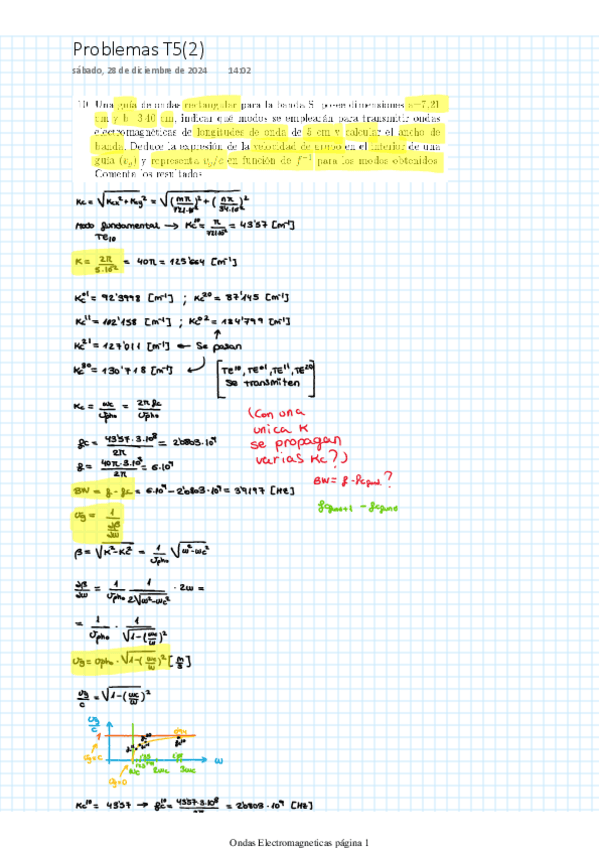 Problemas T5(2)
sábado, 28 de diciembre de 2024 14:02
10. Una guía de ondas rectangular para la banda S, posee dimensiones a=7,21
cm y b=3,40 cm, indicar qué modos se emplearán para transmitir ondas
electromagnéticas de longitudes de onda de 5 cm y calcular el ancho de
banda. Deduce la expresión de la velocidad de grupo en el interior de una
guía (v_g) y representa v_g/c en función de f⁻¹ para los modos obtenidos.
Comenta los resultados
Kc = √(Kcx²+Kcy²) = √((mπ/7'21·10⁻²)² + (nπ/3'4·10⁻²)²)
Modo fundamental → Kc¹⁰ = π/7'21·10⁻² = 43'57 [m⁻¹]
TE₁₀
K = 2π/5·10⁻² = 40π = 125'664 [m⁻¹]
Kc⁰¹ = 92'3998 [m⁻¹] ; Kc²⁰ = 87'145 [m⁻¹]
Kc¹¹ = 102'158 [m⁻¹] ; Kc⁰² = 184'799 [m⁻¹]
Kc²¹ = 127'011 [m⁻¹] ← Se pasan
Kc³⁰ = 130'718 [m⁻¹]
[TE¹⁰, TE⁰¹, TE¹¹, TE²⁰
Se transmiten]
Kc = ωc/vpho = 2πfc/vpho
fc = 43'57·3·10⁸/2π = 2'0803·10⁹
f = 40π·3·10⁸/2π = 6·10⁹
(Con una
unica K
se propagan
varias Kc?)
BW = f - fc = 6·10⁹ - 2'0803·10⁹ = 3'9197 [Hz]
BW = f - fc ?
vg = 1/(∂β/∂ω)
β = √(K²-Kc²) = 1/vpho √(ω²-ωc²)
∂β/∂ω = 1/vpho · 1/2√(ω²-ωc²) · 2ω =
= 1/vpho · 1/√(1-(ωc/ω)²)
vg = vpho · √(1-(ωc/ω)²) [m/s]
vg/c = √(1-(ωc/ω)²)
vg/c
1
vg=c
vg=0
ωc
2ωc
3ωc
ω
Kc¹⁰ = 43'57 → fc¹⁰ = 43'57·3·10⁸/2π = 2'0803·10⁹ [Hz]
Ondas Electromagneticas página 1